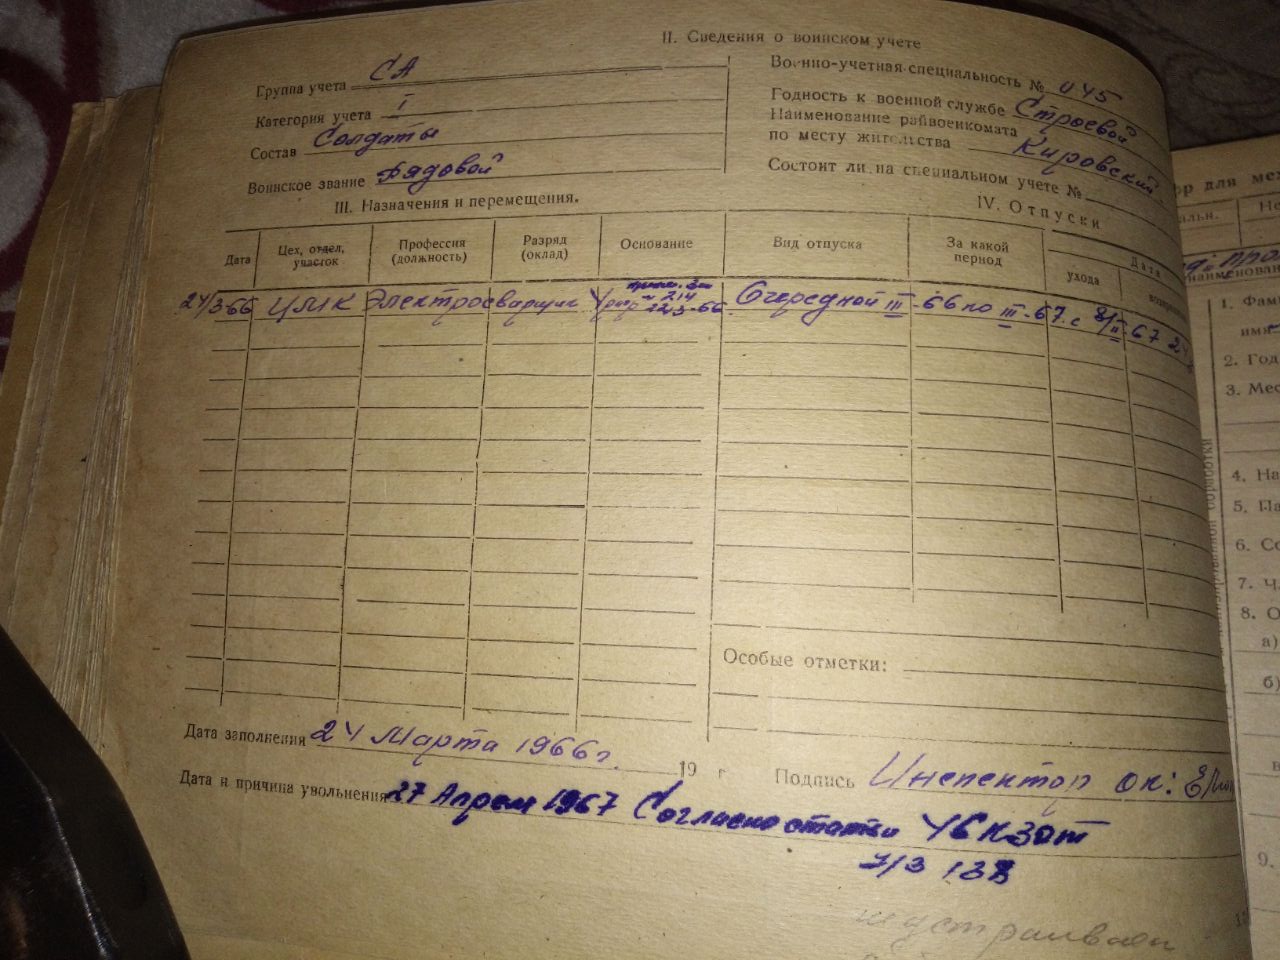 II. Сведения о воинском учете
Группа учета СА
Категория учета I
Состав Солдаты
Воинское звание Рядовой
Военно-учетная специальность № 045
Годность к военной службе Строевой
Наименование райвоенкомата
по месту жительства Кировский
Состоит ли на специальном учете №
III. Назначения и перемещения.
IV. Отпуски
Дата
Цех, отдел, участок
Профессия (должность)
Разряд (оклад)
Основание
Вид отпуска
За какой период
Дата
ухода
24/3-66 ЦМК Электросварщик 22.3-66 Очередной III-66 по III-67. с 8/II-67 24
Особые отметки:
Дата заполнения 24 Марта 1966 г. 19 г
Подпись Инспектор ок:
Дата и причина увольнения 27 Апреля 1967 Согласно статьи 46 КЗОТ
ор для мех
1. Фам
имя
2. Год
3. Мес
4. На
5. Па
6. Со
7. Ч
8. О
а)
б)
9.